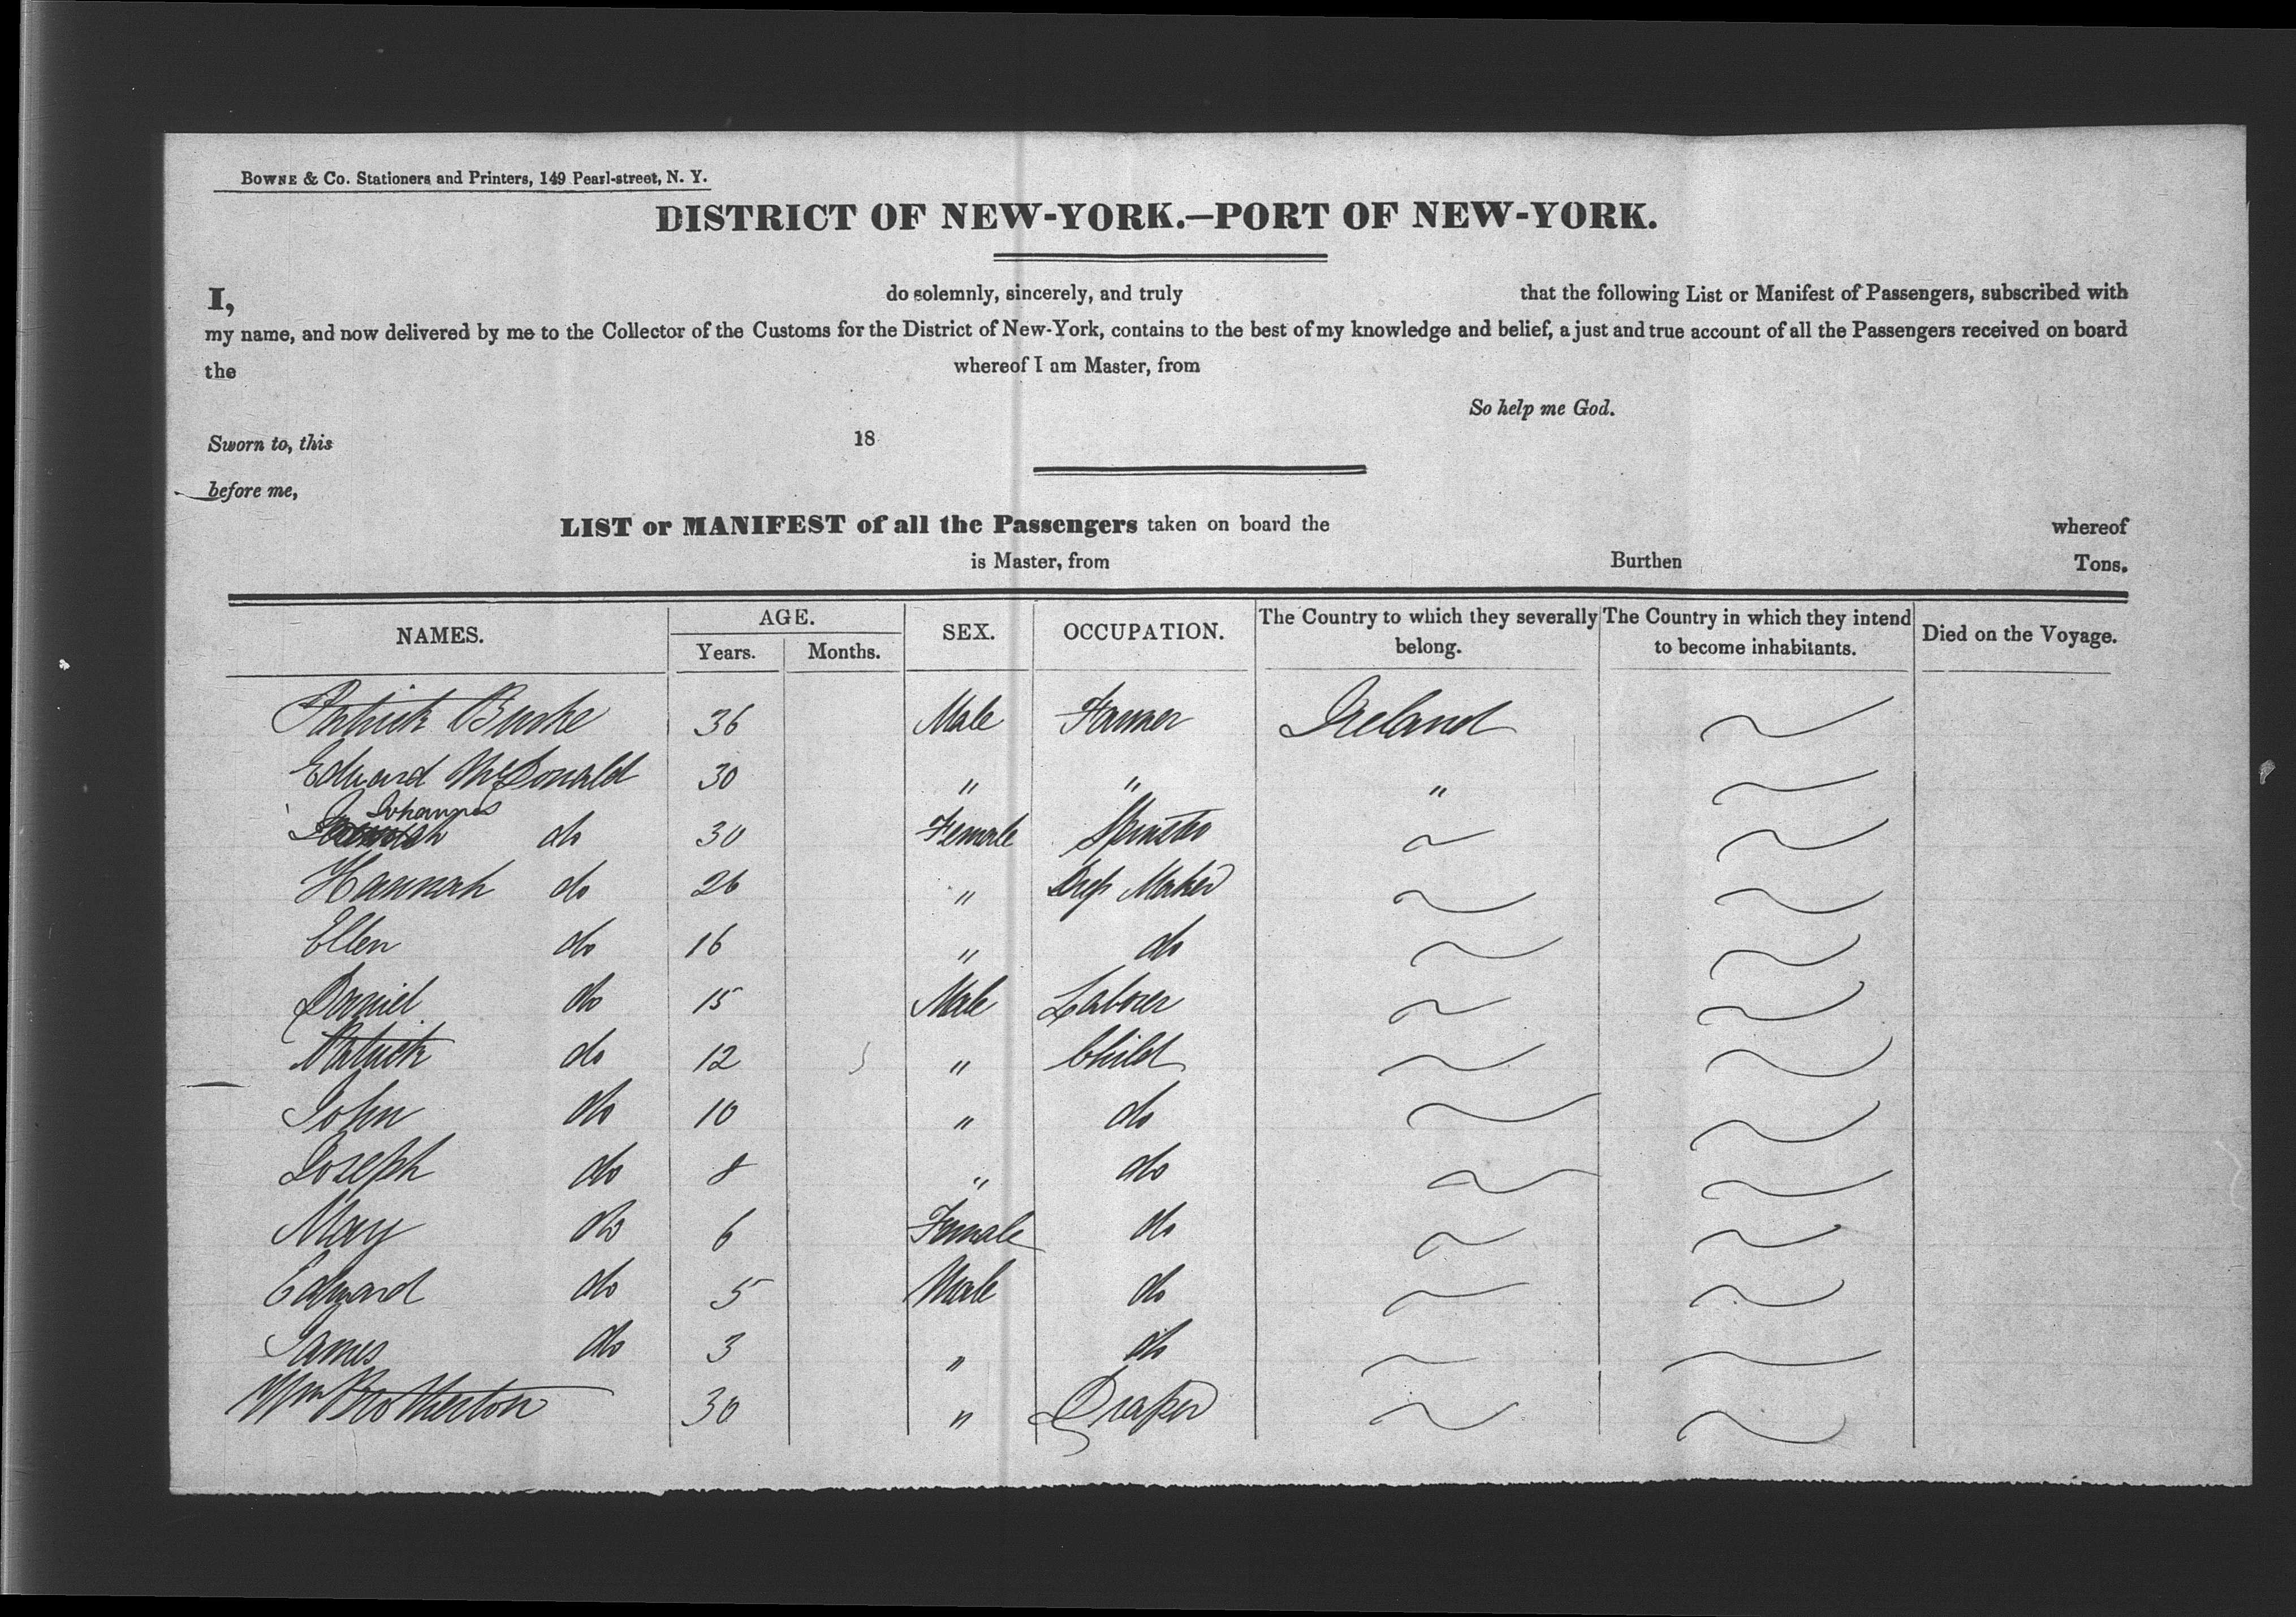 BOWNE & CO. Stationers and Printers, 149 Pearl-street, N. Y.
DISTRICT OF NEW-YORK.—PORT OF NEW-YORK.
I, do solemnly, sincerely, and truly that the following List or Manifest of Passengers, subscribed with
my name, and now delivered by me to the Collector of the Customs for the District of New-York, contains to the best of my knowledge and belief, a just and true account of all the Passengers received on board
the whereof I am Master, from
So help me God.
Sworn to, this 18
before me,
LIST or MANIFEST of all the Passengers taken on board the whereof
is Master, from Burthen Tons.
NAMES. AGE. Years. Months. SEX. OCCUPATION. The Country to which they severally belong. The Country in which they intend to become inhabitants. Died on the Voyage.
Patrick Burke 36 Male Farmer Ireland
Edward McDonald 30 " " "
do 30 Female Spinster
Hannah do 26 " Dress Maker
Ellen do 16 " do
Daniel do 15 Male Laborer
Patrick do 12 " Child
John do 10 " do
Joseph do 8 " do
May do 6 Female do
Edward do 5 Male do
James do 3 " do
Wm Brotherton 30 " Draper